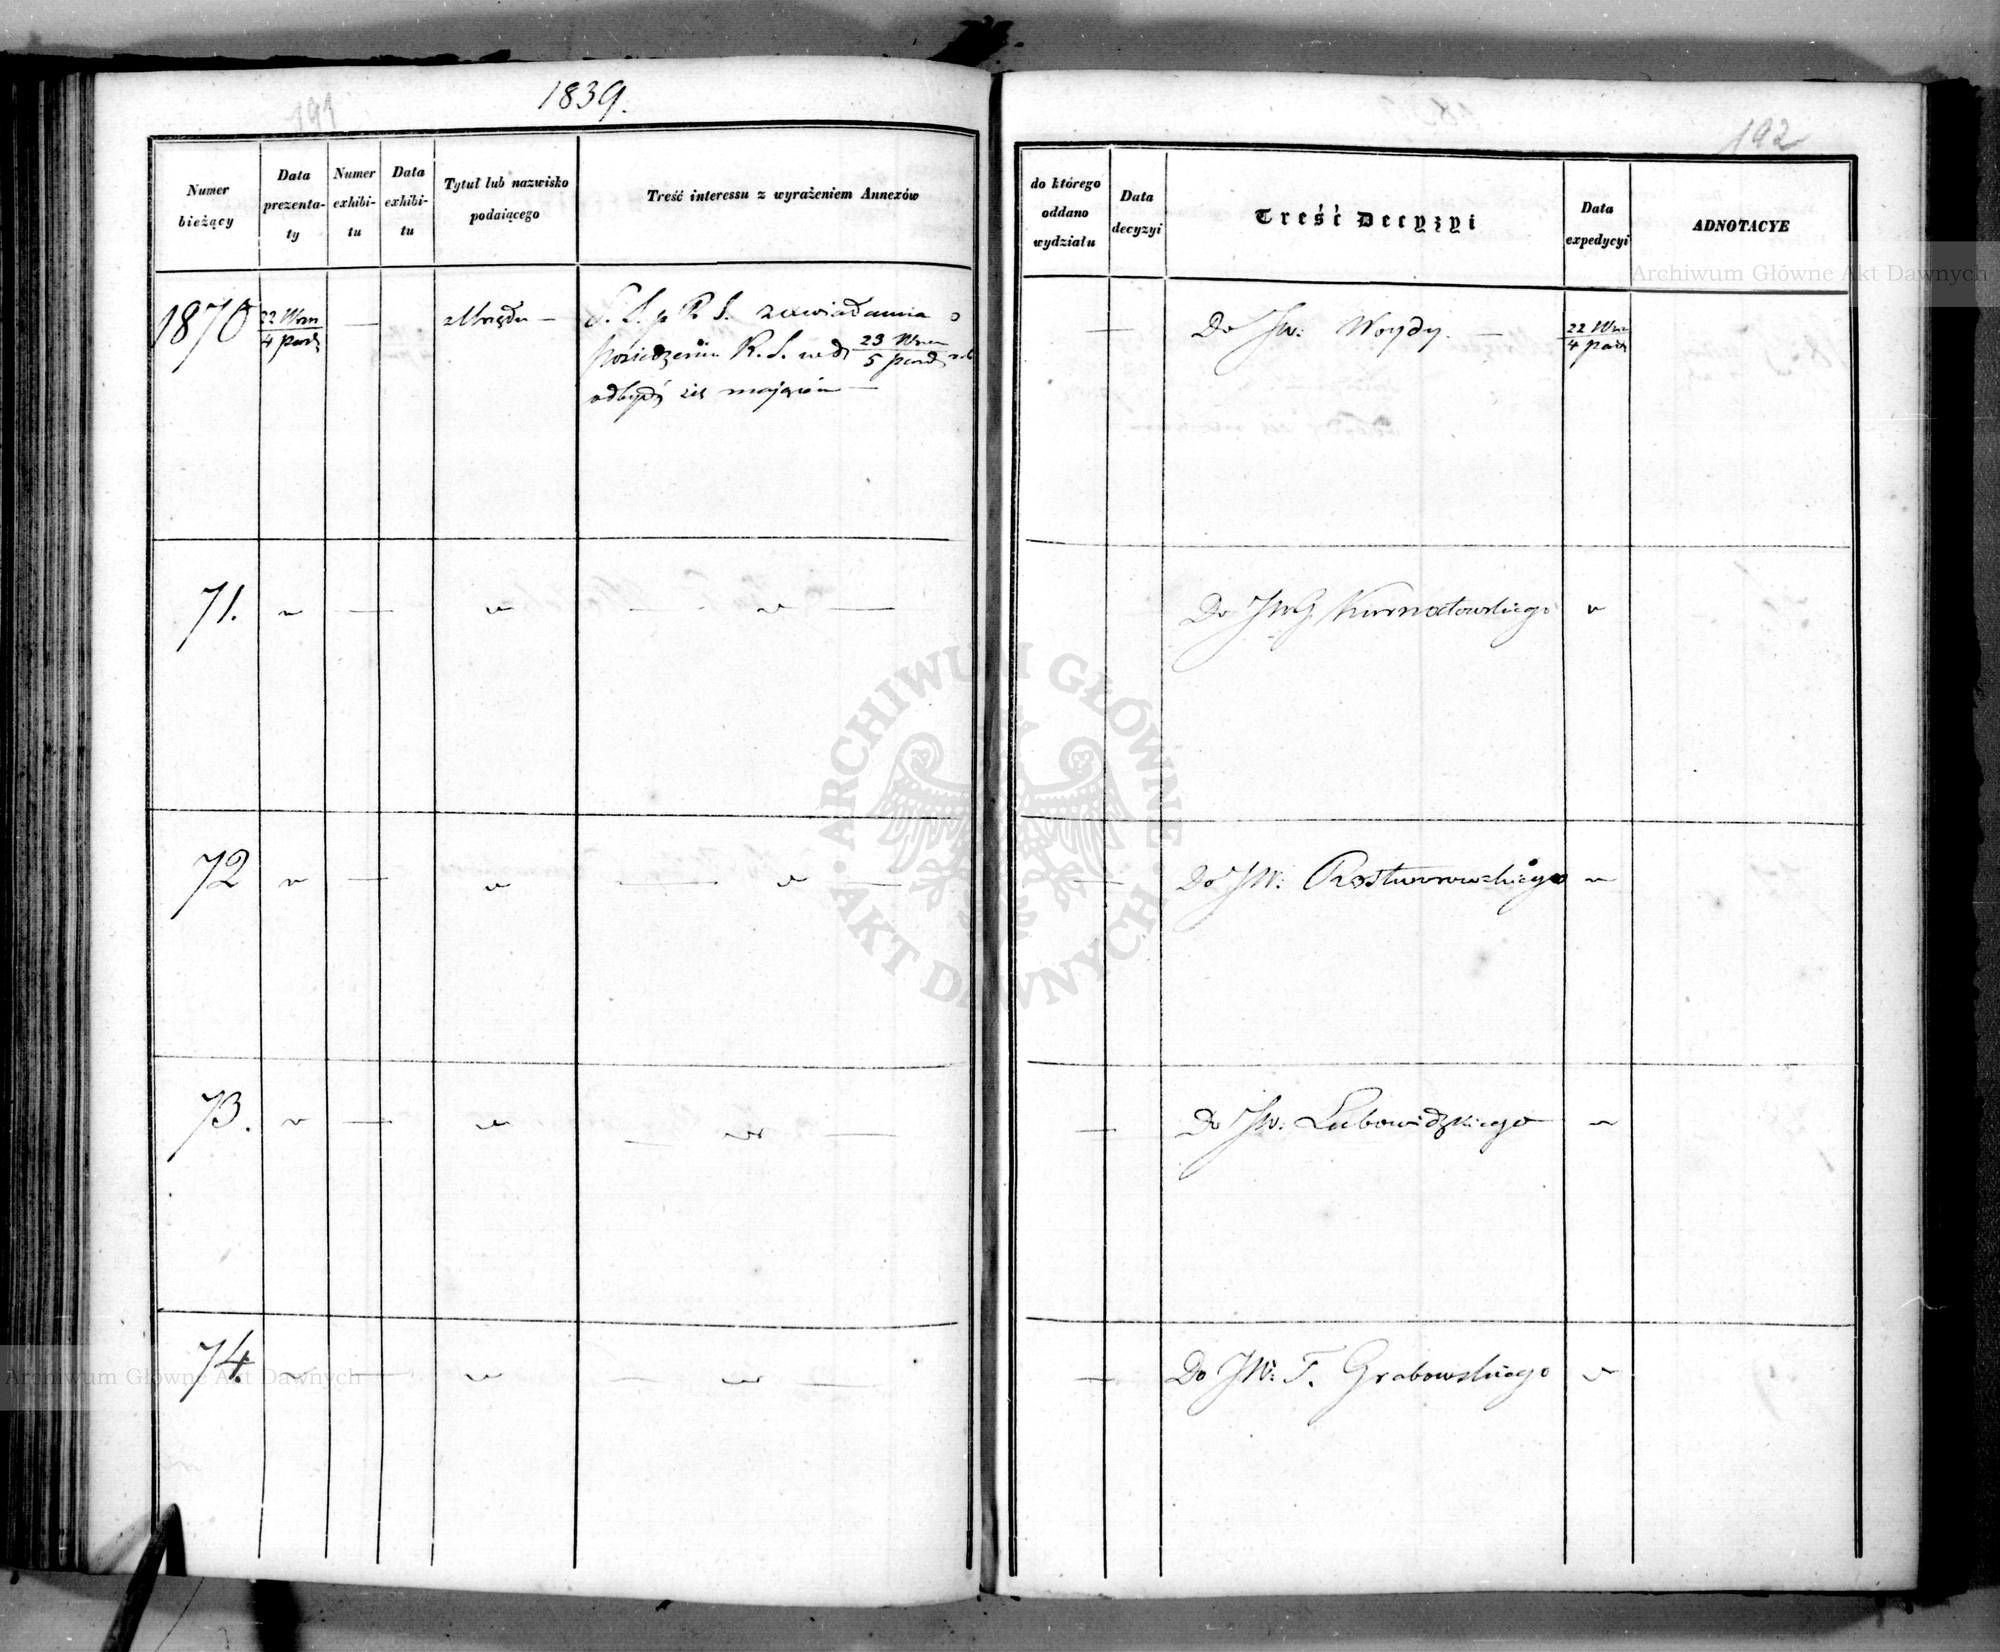 1839.
191
192
Numer bieżący
Data prezenta-ty
Numer exhibi-tu
Data exhibi-tu
Tytuł lub nazwisko podaiącego
Treść interessu z wyrażeniem Annexów
do którego oddano wydziału
Data decyzyi
Treść Decyzyi
Data expedycyi
ADNOTACYE
1870 22 Wrz / 4 paźd — z Urzędu — S. S. p R. S. zawiadamia o
posiedzeniu R. S. w d. 23 Wrz / 5 paźd r. b.
odbydź się mającém —
— Do JW: Woydy. — 22 Wrz / 4 paźd
71. " — " — " — Do JWG. Kurnatowskiego "
72 " — " — " — — Do JW: Rostworowskiego "
73. " — " — " — — Do JW: Lubowidzkiego "
74. " — " — " — — Do JW: F. Grabowskiego "
ARCHIWUM GŁÓWNE AKT DAWNYCH
Archiwum Główne Akt Dawnych
Archiwum Główne Akt Dawnych